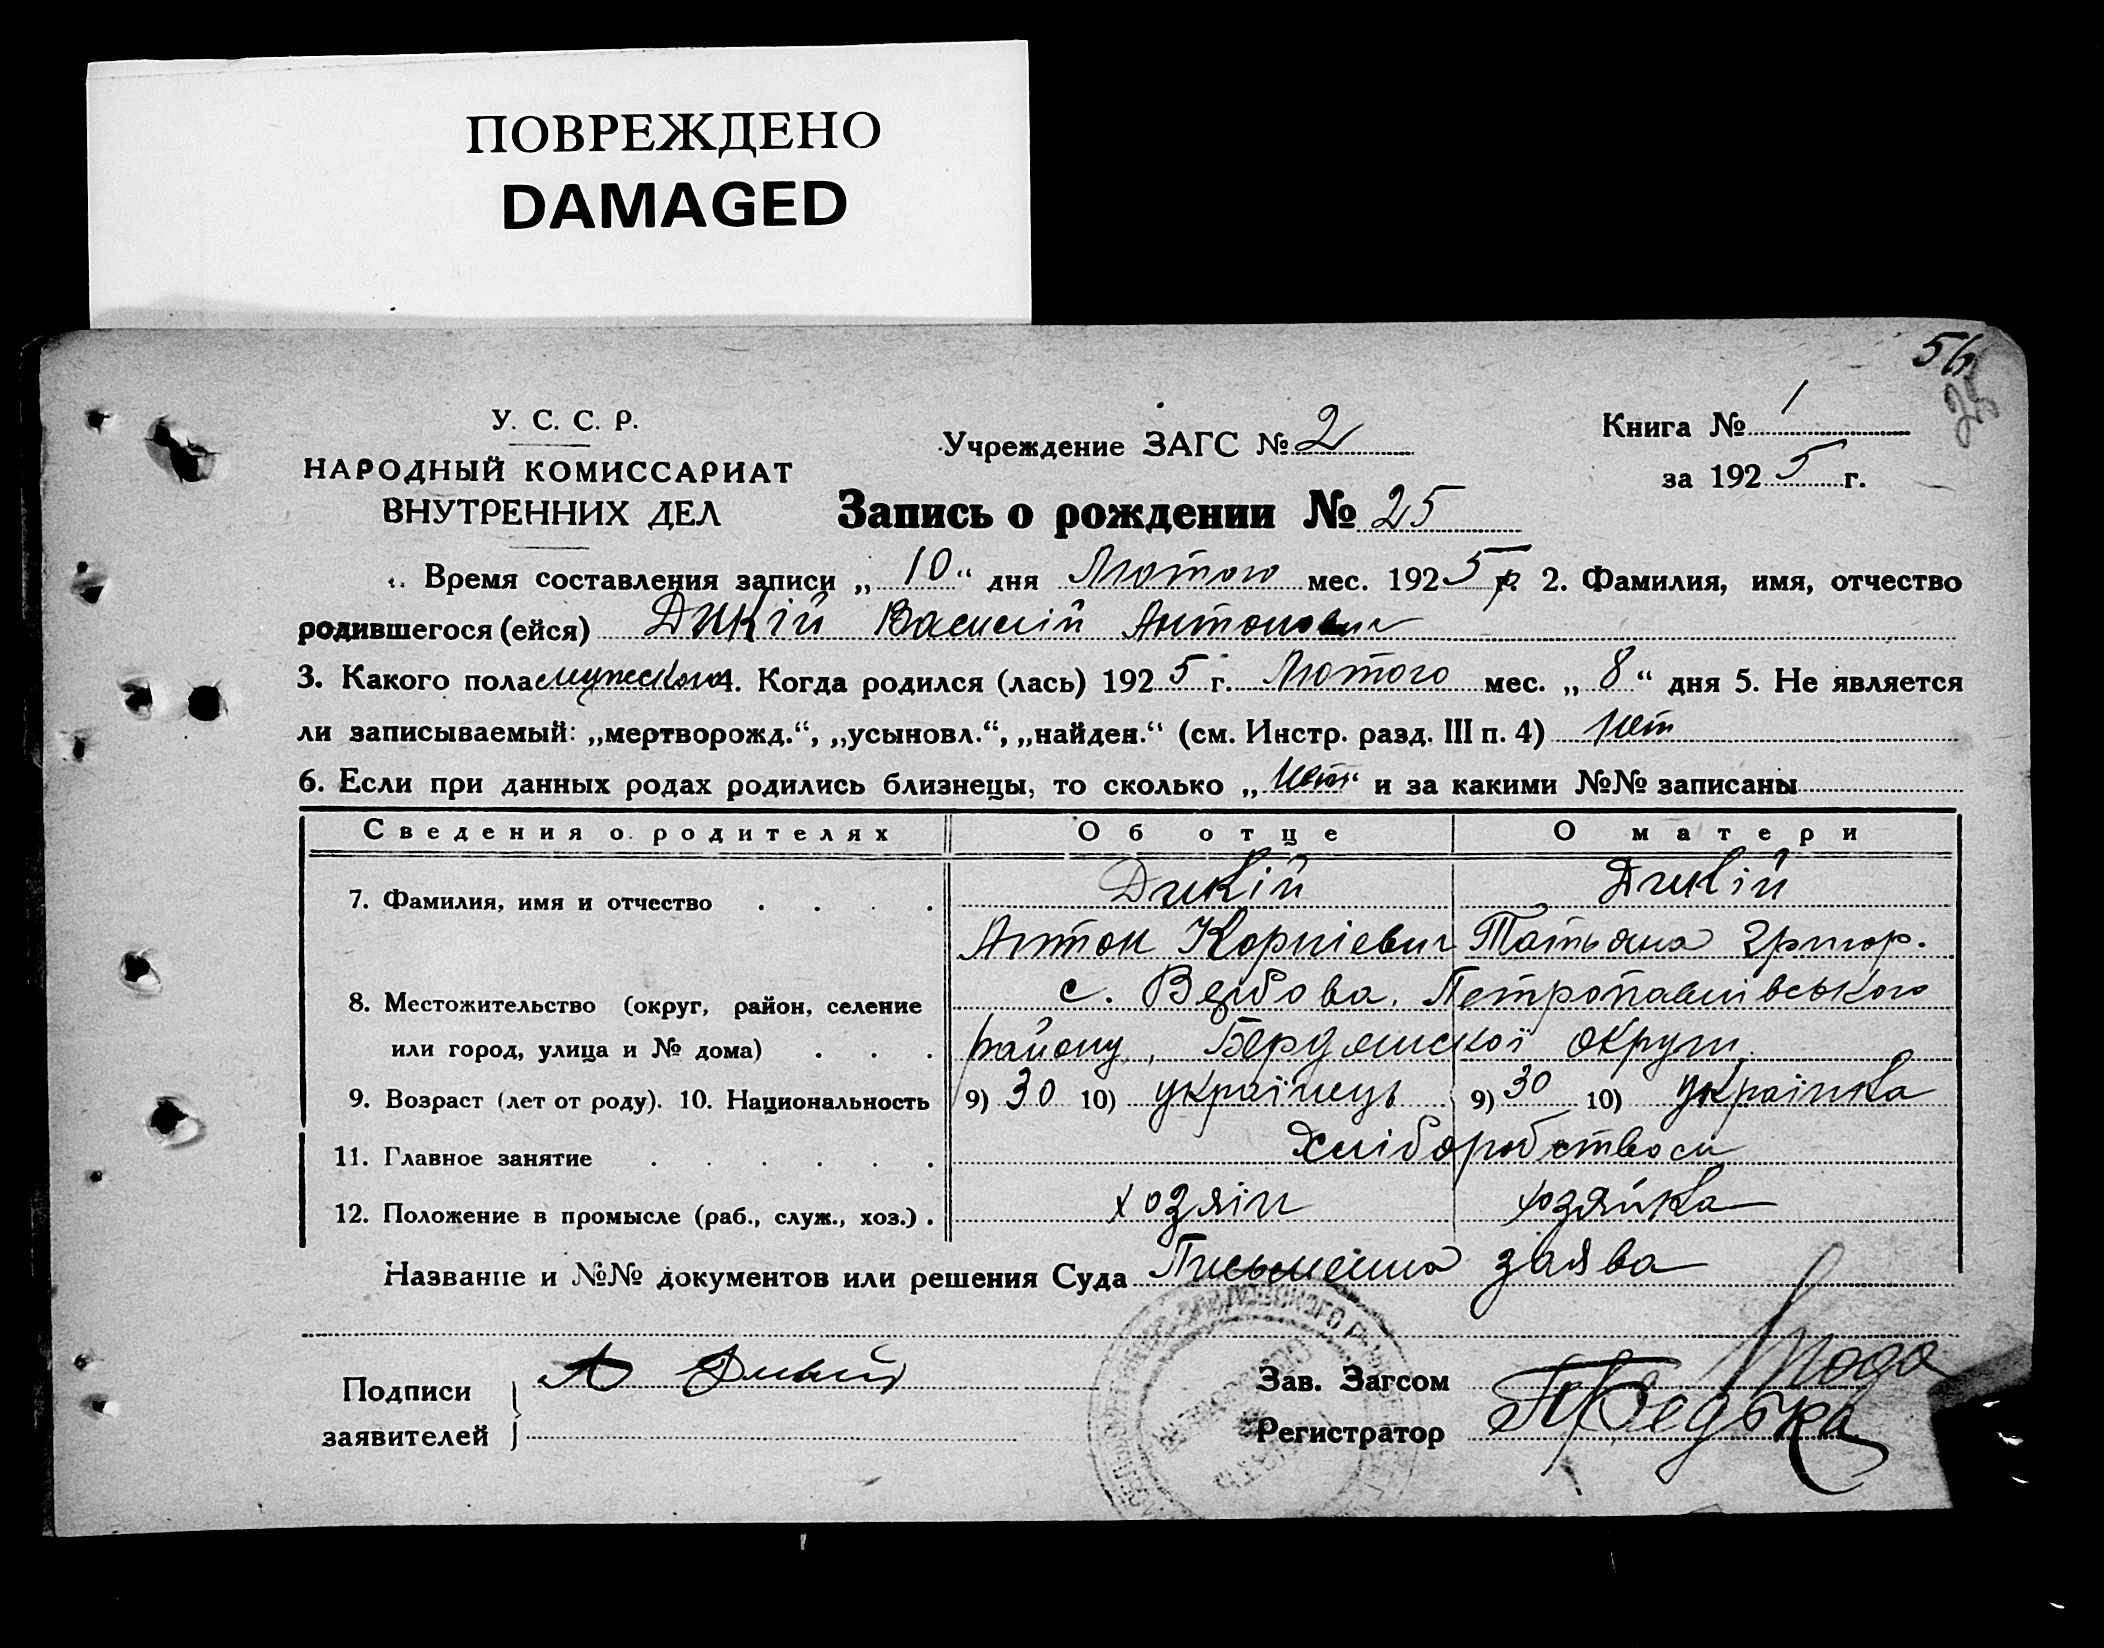 ПОВРЕЖДЕНО
DAMAGED
56
25
У. С. С. Р.
НАРОДНЫЙ КОМИССАРИАТ
ВНУТРЕННИХ ДЕЛ
Учреждение ЗАГС № 2
Книга № 1
за 1925 г.
Запись о рождении № 25
1. Время составления записи „ 10 “ дня Лютого мес. 1925 г. 2. Фамилия, имя, отчество
родившегося (ейся) Дикій Василій Антонович
3. Какого пола мужескаго 4. Когда родился (лась) 1925 г. Лютого мес. „ 8 “ дня 5. Не является
ли записываемый: „мертворожд.“, „усыновл.“, „найден.“ (см. Инстр. разд. III п. 4) нет
6. Если при данных родах родились близнецы, то сколько „ нет “ и за какими №№ записаны
Сведения о родителях Об отце О матери
7. Фамилия, имя и отчество Дикій Дикій
Антон Корніевич Татьяна Григор.
8. Местожительство (округ, район, селение с. Вербова, Петропавлівського
или город, улица и № дома) району, Бердянскої округи
9. Возраст (лет от роду). 10. Национальность 9) 30 10) українець 9) 30 10) українка
11. Главное занятие Хліборобством
12. Положение в промысле (раб., служ., хоз.) хозяін хозяйка
Название и №№ документов или решения Суда Письменна заява
Подписи
заявителей
А Дикий
Зав. Загсом
Регистратор Редька